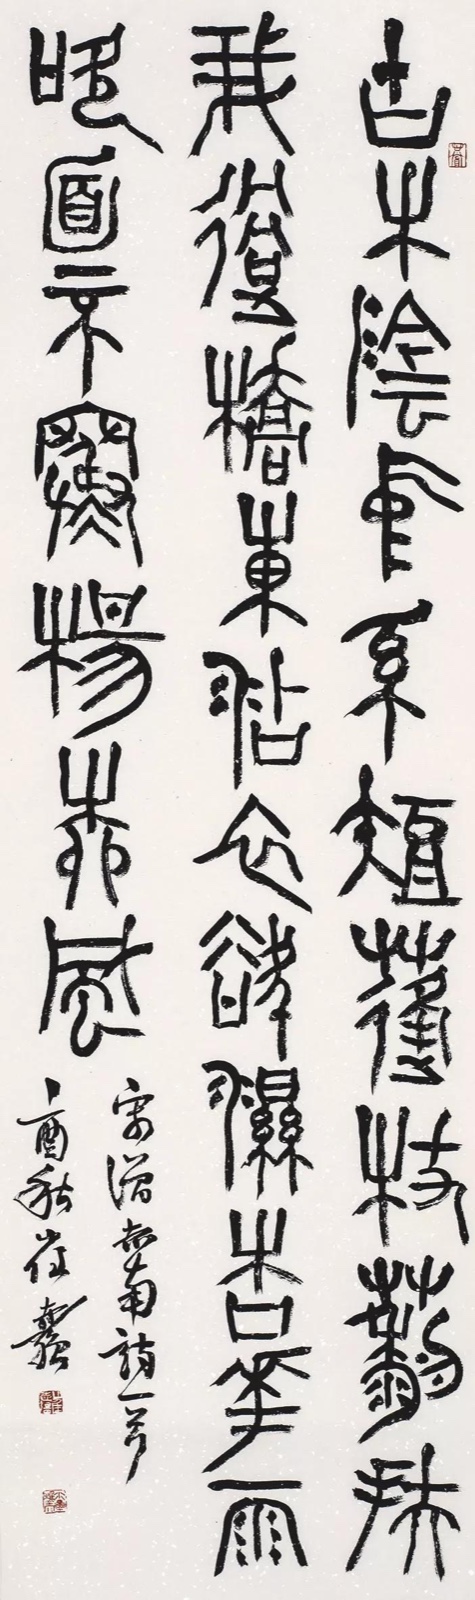 古木陰中系短蓬杖藜扶
我過橋東沾衣欲濕杏華雨
吹面不寒楊柳風
宋僧志南詩一首
丁酉秋崔